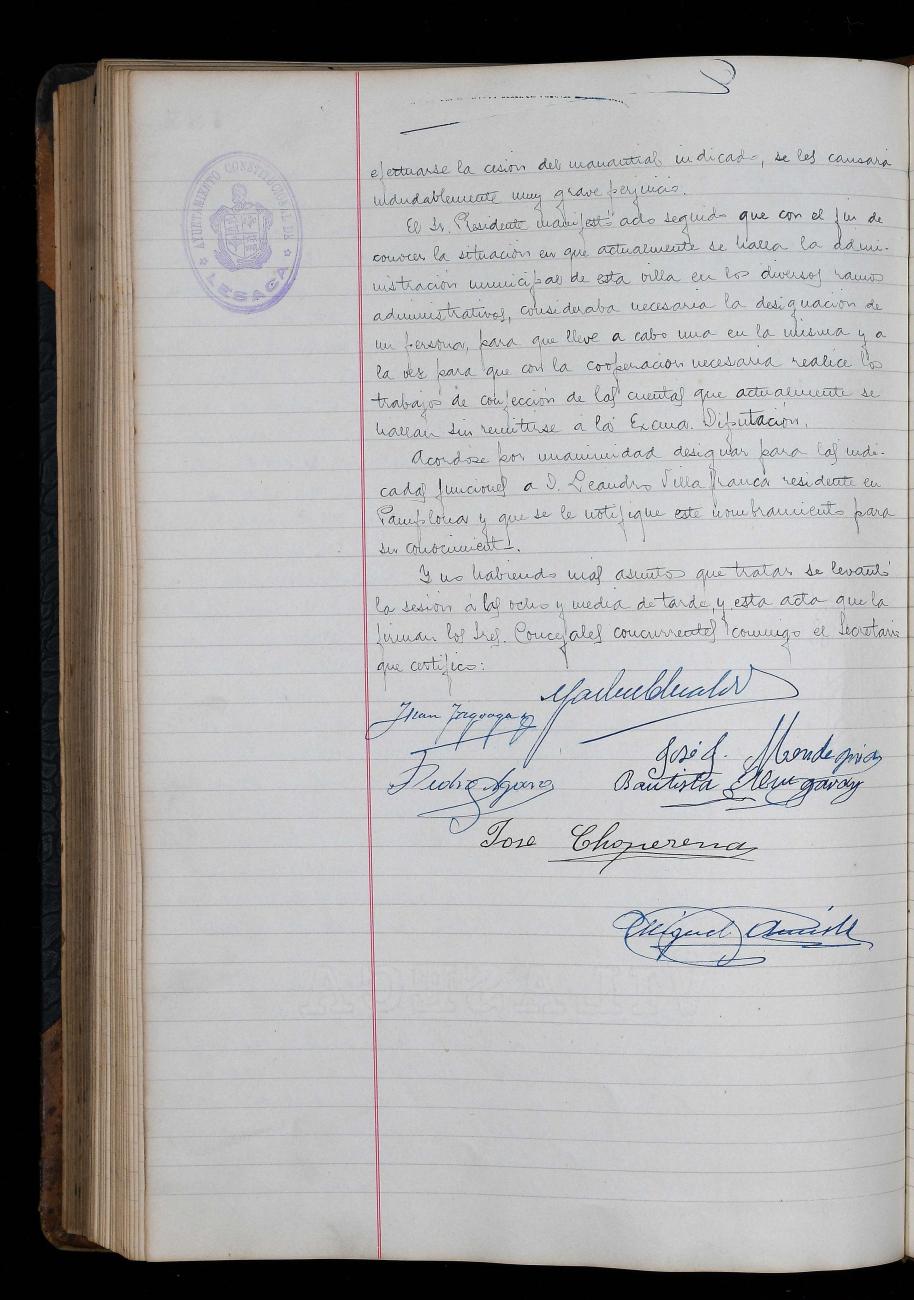 AYUNTAMIENTO CONSTITUCIONAL DE
LESACA
efectuarse la cesión del manantial indicado, se les causará
indudablemente muy grave perjuicio.
El Sr. Presidente manifestó acto seguido que con el fin de
conocer la situación en que actualmente se halla la admi-
nistración municipal de esta villa en los diversos ramos
administrativos, consideraba necesaria la designación de
un persona, para que lleve a cabo una en la misma y a
la vez para que con la cooperación necesaria realice los
trabajos de confección de las cuentas que actualmente se
hallan sin remitirse a la Excma. Diputación.
Acordóse por unanimidad designar para las indi-
cadas funciones a D. Leandro Villafranca residente en
Pamplona y que se le notifique este nombramiento para
su conocimiento.
Y no habiendo más asuntos que tratar se levantó
la sesión a las ocho y media de tarde y esta acta que la
firman los Sres. Concejales concurrentes conmigo el Secretario
que certifico:
Juan
José J. Mendarozqueta
Pedro
Bautista
Jose Choperena
Miguel